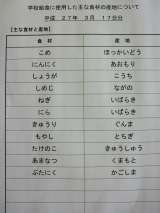 学校給食に使用した主な食材の産地について
平成 27年 3月 17日分
【主な食材と産地】
食材 産地
こめ ほっかいどう
にんにく あおもり
しょうが こうち
しめじ ながの
ねぎ いばらき
にら いばらき
きゅうり ぐんま
もやし とちぎ
たけのこ かごしま
あまなつ くまもと
ぶたにく かごしま